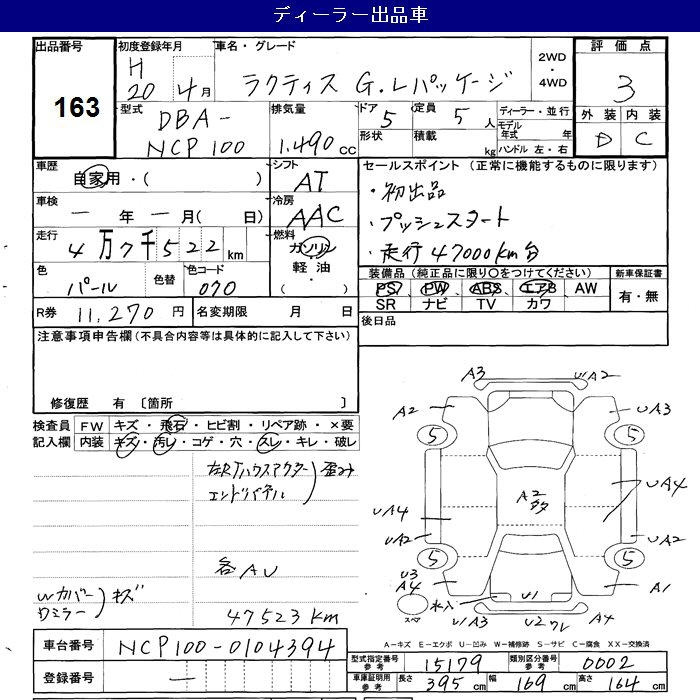 ディーラー出品車
出品番号
163
初度登録年月
H
20 4月
車名・グレード
ラクティス G.Lパッケージ
2WD
・
4WD
評価点
3
外装 内装
D C
型式
DBA-
NCP100
排気量
1.490cc
ドア
5
定員
5人
形状
積載 kg
ディーラー・並行
モデル
年式 年
ハンドル 左・右
車歴
自家用・( )
シフト
AT
車検
一年一月( 日)
冷房
AAC
走行
4万7千522km
燃料
ガソリン
軽油・
( )
色
パール
色替
色コード
070
R券 11,270円
名変期限 月 日
セールスポイント(正常に機能するものに限ります)
・初出品
・プッシュスタート
・走行47000km台
装備品(純正品に限り○をつけてください)
PS PW ABS エアB AW
SR ナビ TV カワ
新車保証書
有・無
後日品
注意事項申告欄(不具合内容等は具体的に記入して下さい)
修復歴 有 〔箇所 〕
検査員
記入欄
FW キズ・飛石・ヒビ割・リペア跡・×要
内装 キズ・汚レ・コゲ・穴・スレ・キレ・破レ
左右Tハウスアウター
エンドパネル
歪み
各AU
Wカバー
Wミラー
キズ
47523km
A3 U/A2
A2 UA3
5 5
A2
多タ
UA4 UA4
UA2 UA2
5 5
U3
A4 A1
スペア
水入 U1
U/A3 U2ワレ A4
A-キズ E-エクボ U-凹み W-補修跡 S-サビ C-腐食 XX-交換済
車台番号 NCP100-0104394
登録番号 ―
型式指定番号
参考
15179
類別区分番号
参考
0002
車庫証明用
参考
長さ 395cm 幅 169cm 高さ 164cm